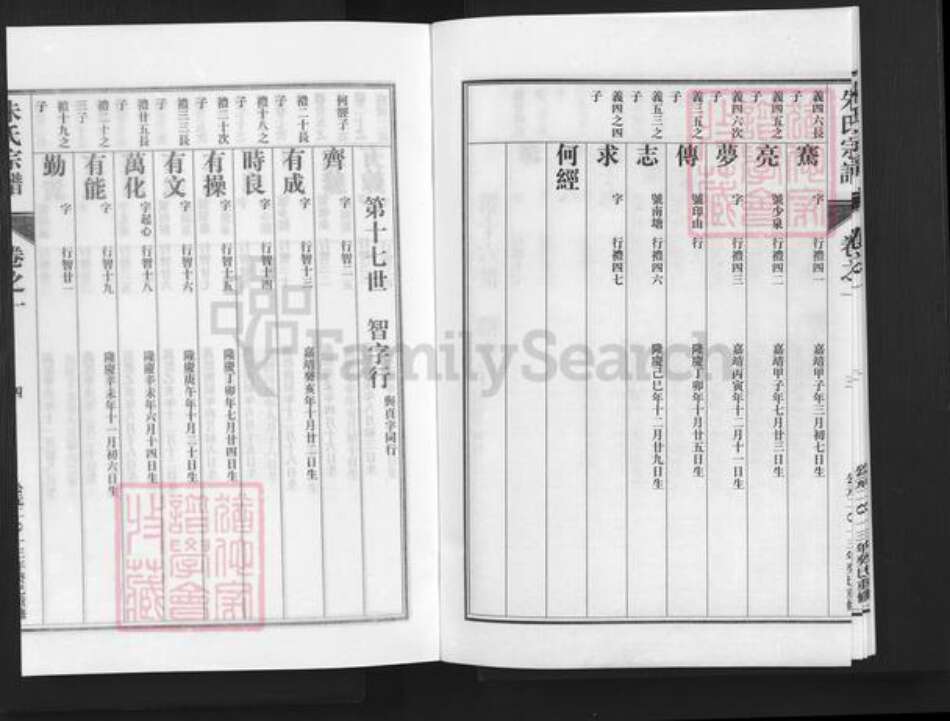 義四六長子 騫 字 行禮四一 嘉靖甲子年三月初七日生
義四五之子 亮 號少泉 行禮四二 嘉靖甲子年七月廿三日生
義四六次子 夢 字 行禮四三 嘉靖丙寅年十二月十一日生
義三五之子 傳 號印山 行 隆慶丁卯年十月廿五日生
義五三之子 志 號南塘 行禮四六 隆慶己巳年十二月廿九日生
義四之四子 求 字 行禮四七
何經
第十七世 智字行 與貞字同行
何經子 齊 字 行智二
禮二十長子 有成 字 行智十三 嘉靖癸亥年十月廿二日生
禮十八之子 時良 字 行智十四
禮二十次子 有操 字 行智十五 隆慶丁卯年七月廿四日生
禮三三長子 有文 字 行智十六 隆慶庚午年十月三十日生
禮廿五長子 萬化 字起心 行智十八 隆慶辛未年六月十四日生
禮二十之三子 有能 字 行智十九 隆慶辛未年十一月初六日生
禮十九之子 勤 字 行智廿一
朱氏宗譜 卷之一 四
FamilySearch